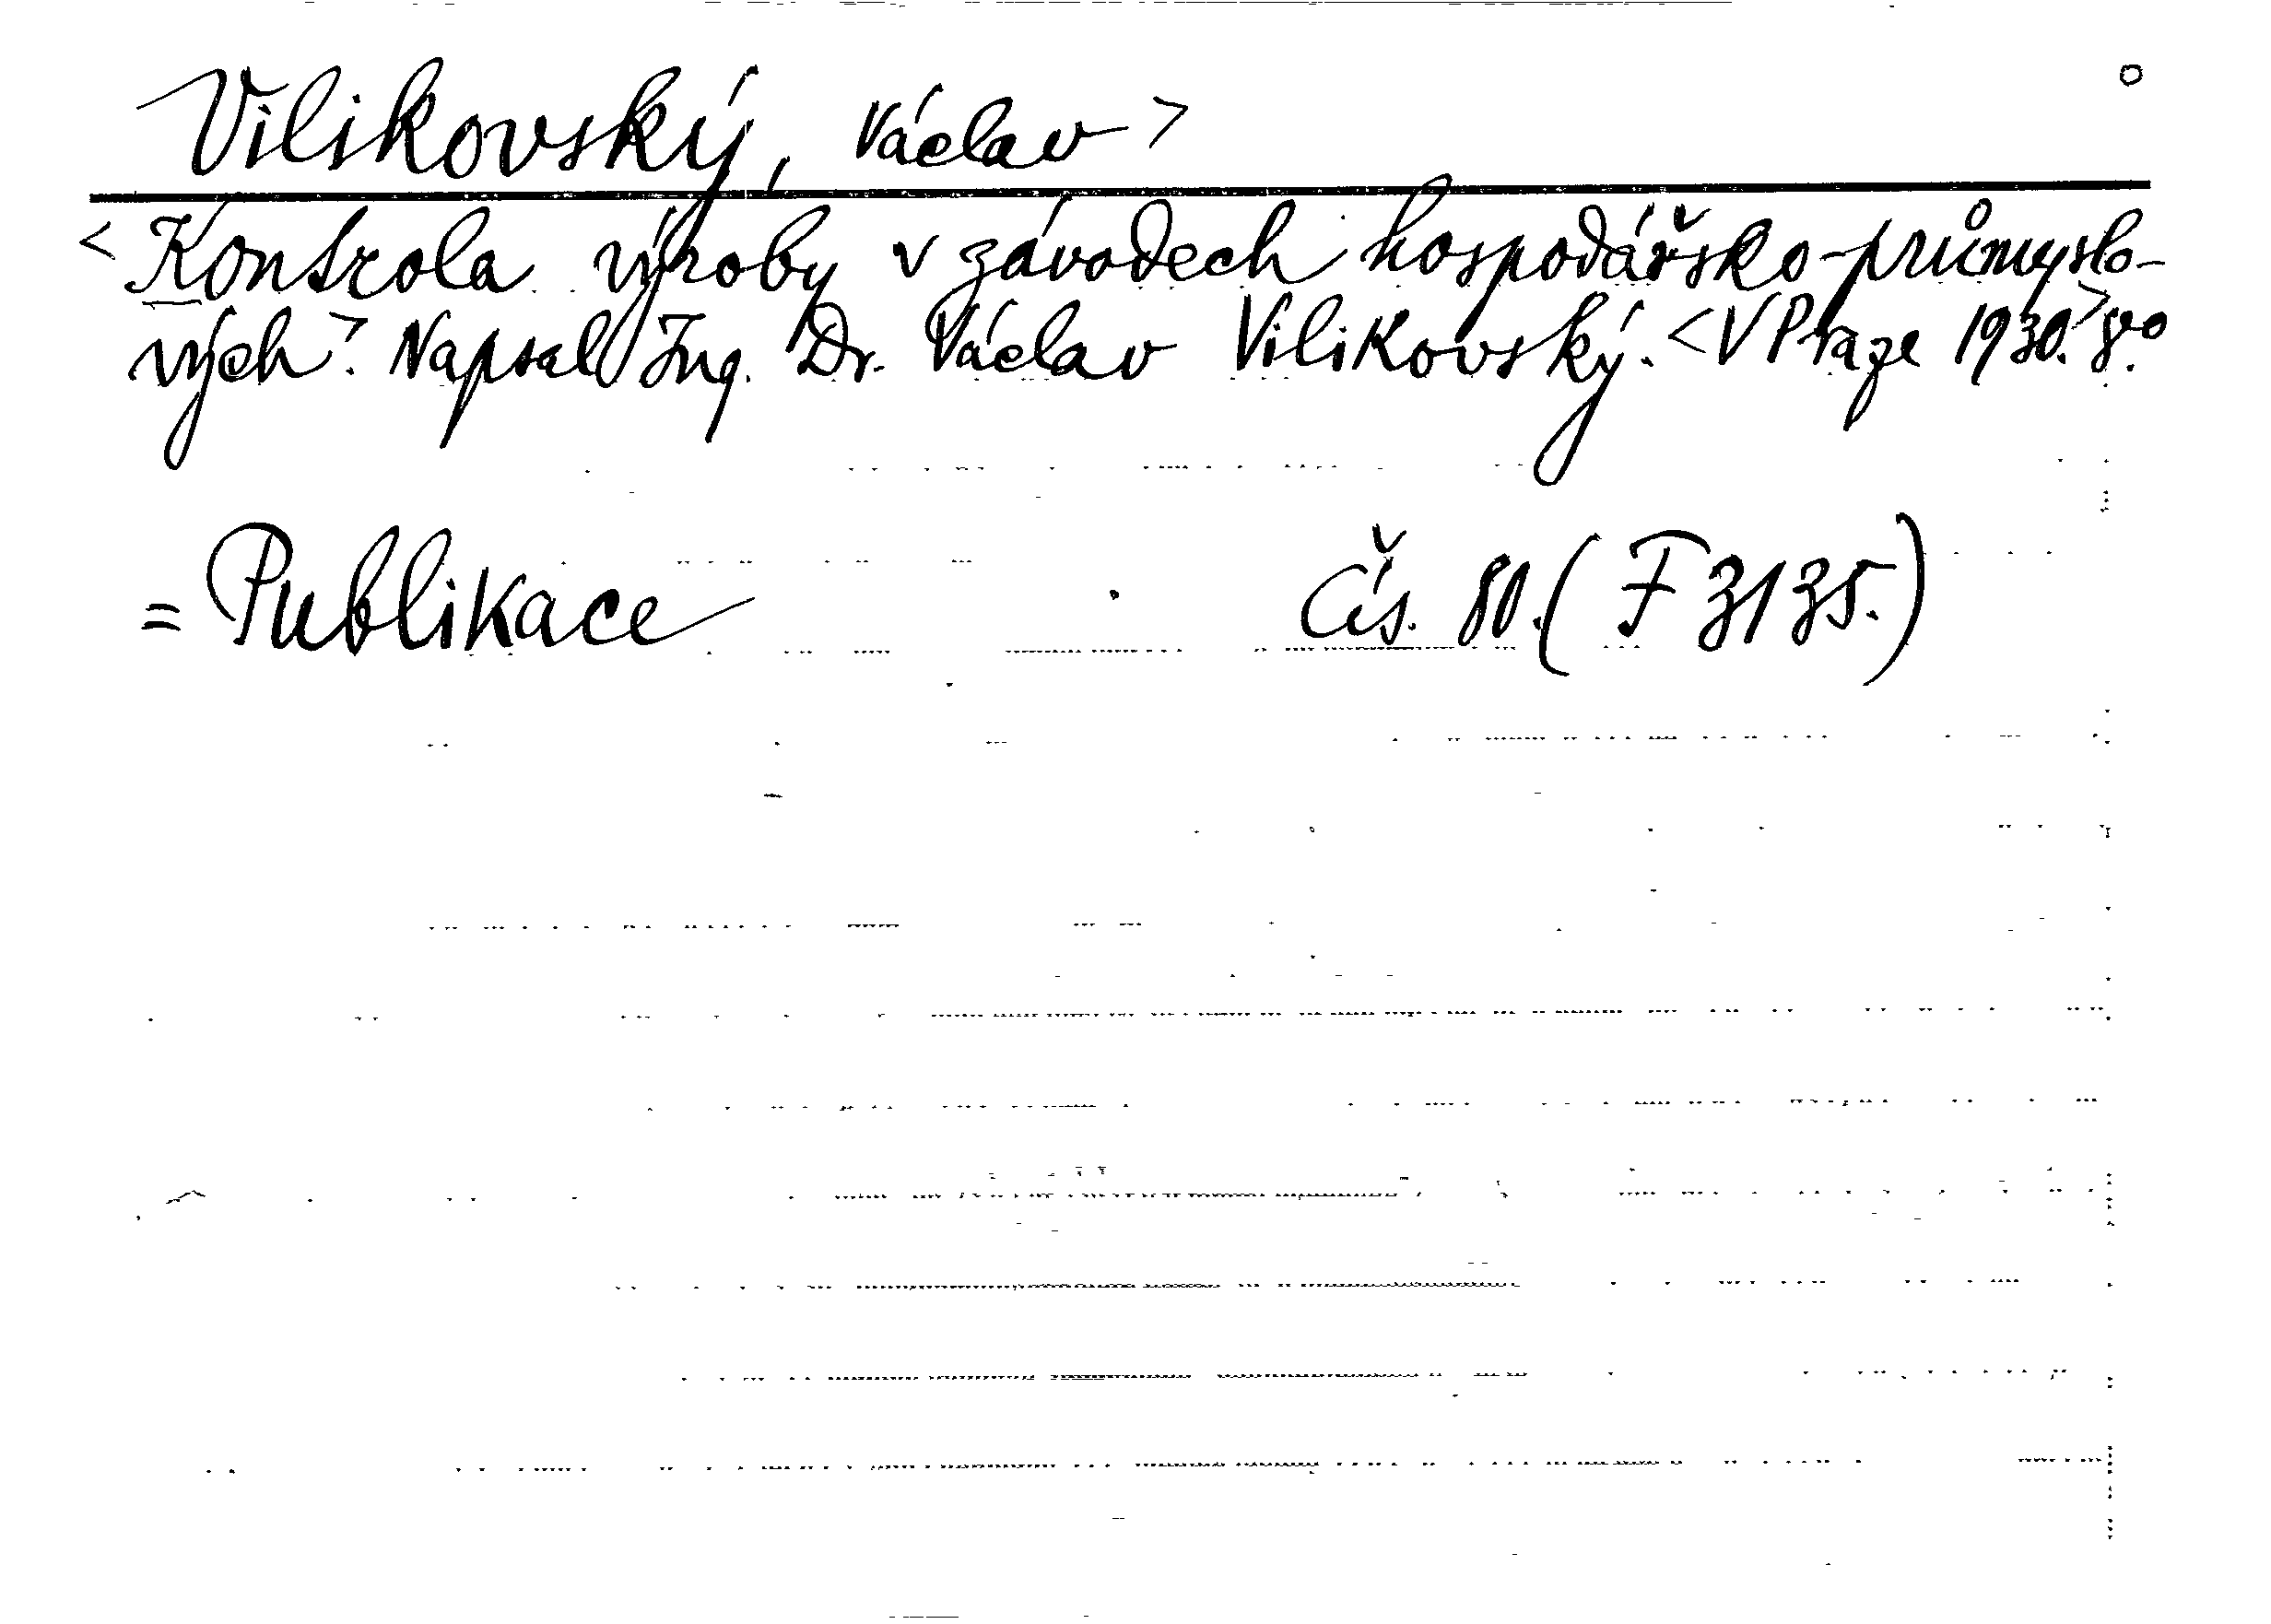 Vilikovský, Václav >
< Kontrola výroby v závodech hospodářsko-průmyslo-
vých >. Napsal Ing. Dr. Václav Vilikovský. < V Praze 1930. > 8°.
= Publikace . Čís. 80. ( F 3135. )